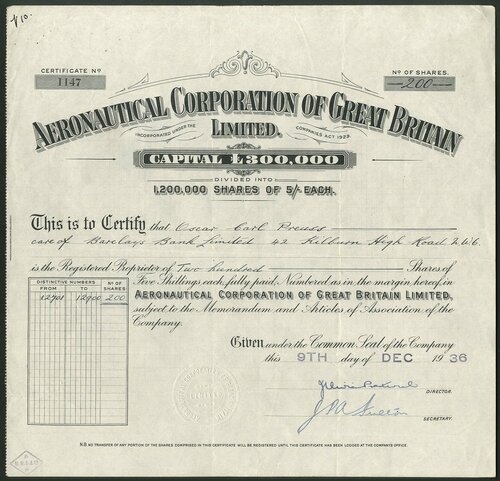 £10.
CERTIFICATE Nº
1147
Nº OF SHARES.
200
AERONAUTICAL CORPORATION OF GREAT BRITAIN
INCORPORATED UNDER THE
LIMITED.
COMPANIES ACT 1929.
CAPITAL £300,000
DIVIDED INTO
1,200,000 SHARES OF 5/- EACH.
This is to Certify that Oscar Carl Preuss
care of Barclays Bank Limited 42 Kilburn High Road N.W.6.
is the Registered Proprietor of Two hundred Shares of
Five Shillings each, fully paid, Numbered as in the margin hereof, in
AERONAUTICAL CORPORATION OF GREAT BRITAIN LIMITED,
subject to the Memorandum and Articles of Association of the
Company.
DISTINCTIVE NUMBERS
Nº OF SHARES
FROM
TO
12701
12900
200
Given under the Common Seal of the Company
this 9TH day of DEC 1936
DIRECTOR.
SECRETARY.
N.B. NO TRANSFER OF ANY PORTION OF THE SHARES COMPRISED IN THIS CERTIFICATE WILL BE REGISTERED UNTIL THIS CERTIFICATE HAS BEEN LODGED AT THE COMPANY'S OFFICE.